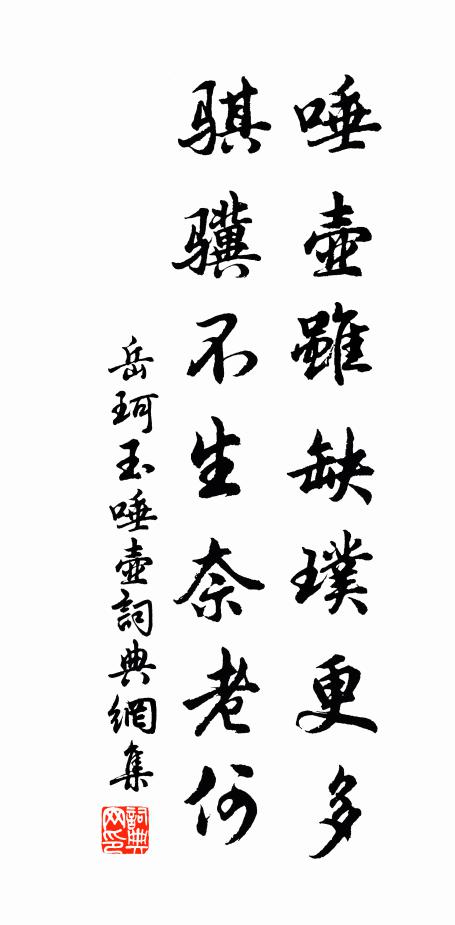 唾壺雖缺璞更多
骐骥不生奈老何
岳珂玉唾壺詞典網集
詞典網印